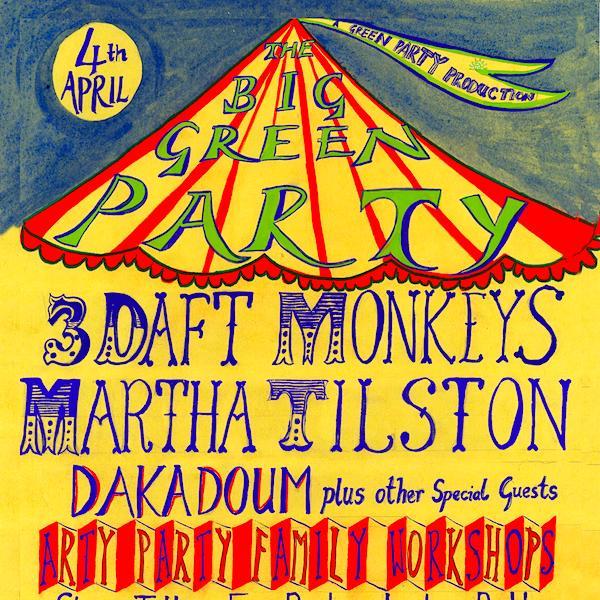 4th
APRIL
A GREEN PARTY PRODUCTION
THE
BIG
GREEN
PARTY
3 DAFT MONKEYS
MARTHA TILSTON
DAKADOUM plus other Special Guests
ARTY PARTY FAMILY WORKSHOPS